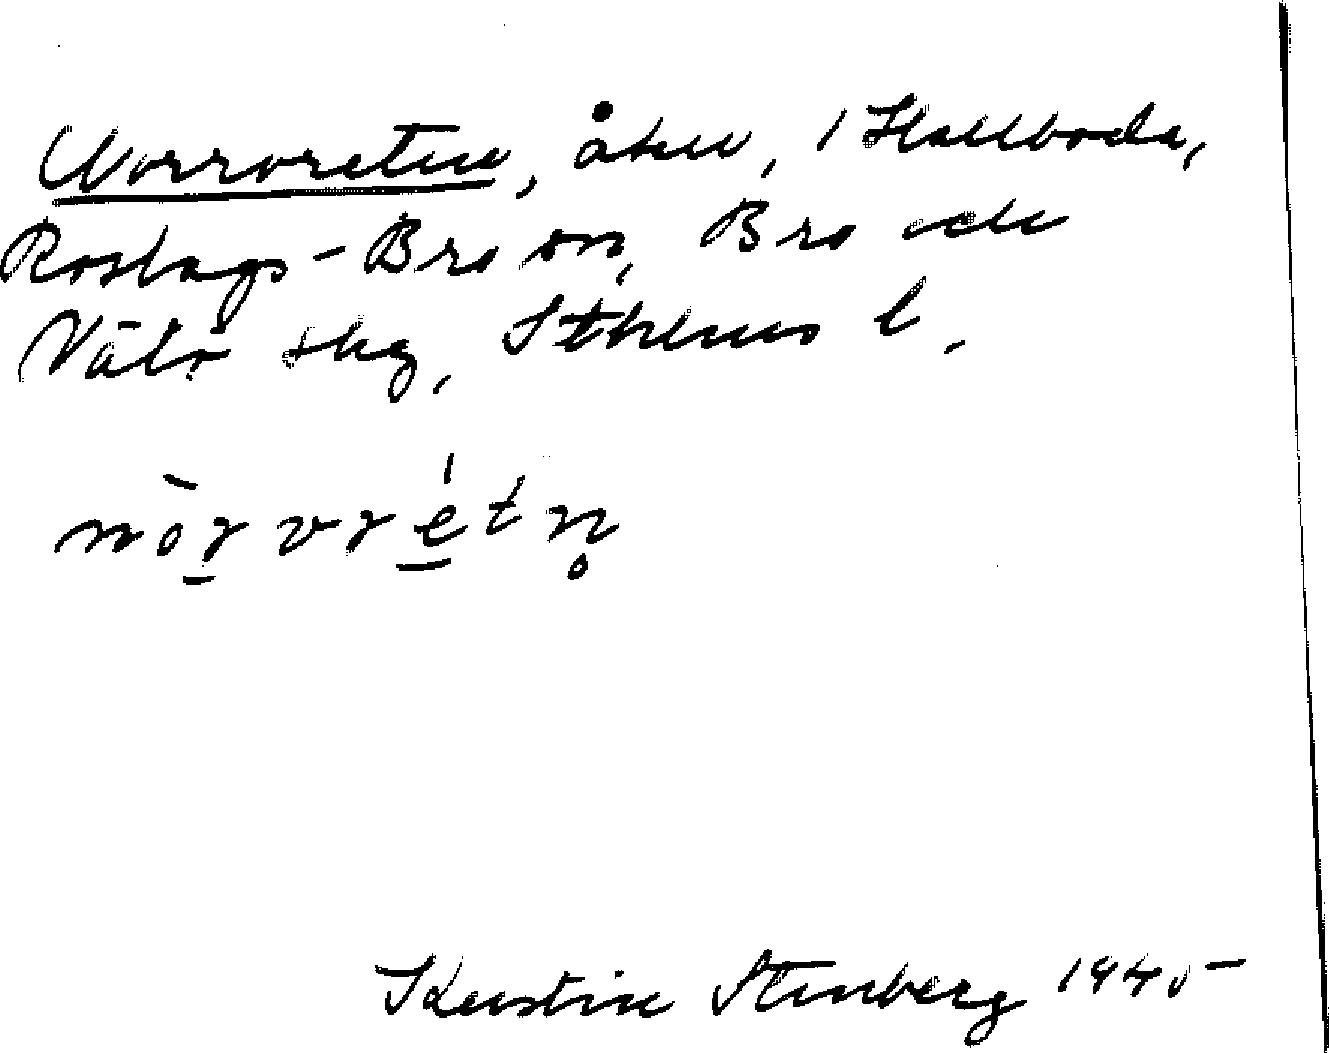 Norrvreten, åker, 1 Hallboda,
Roslags-Bro sn, Bro och
Vätö skg, Sthlms l.
nò̱rvré̱tn̥
Kerstin Stenberg 1945